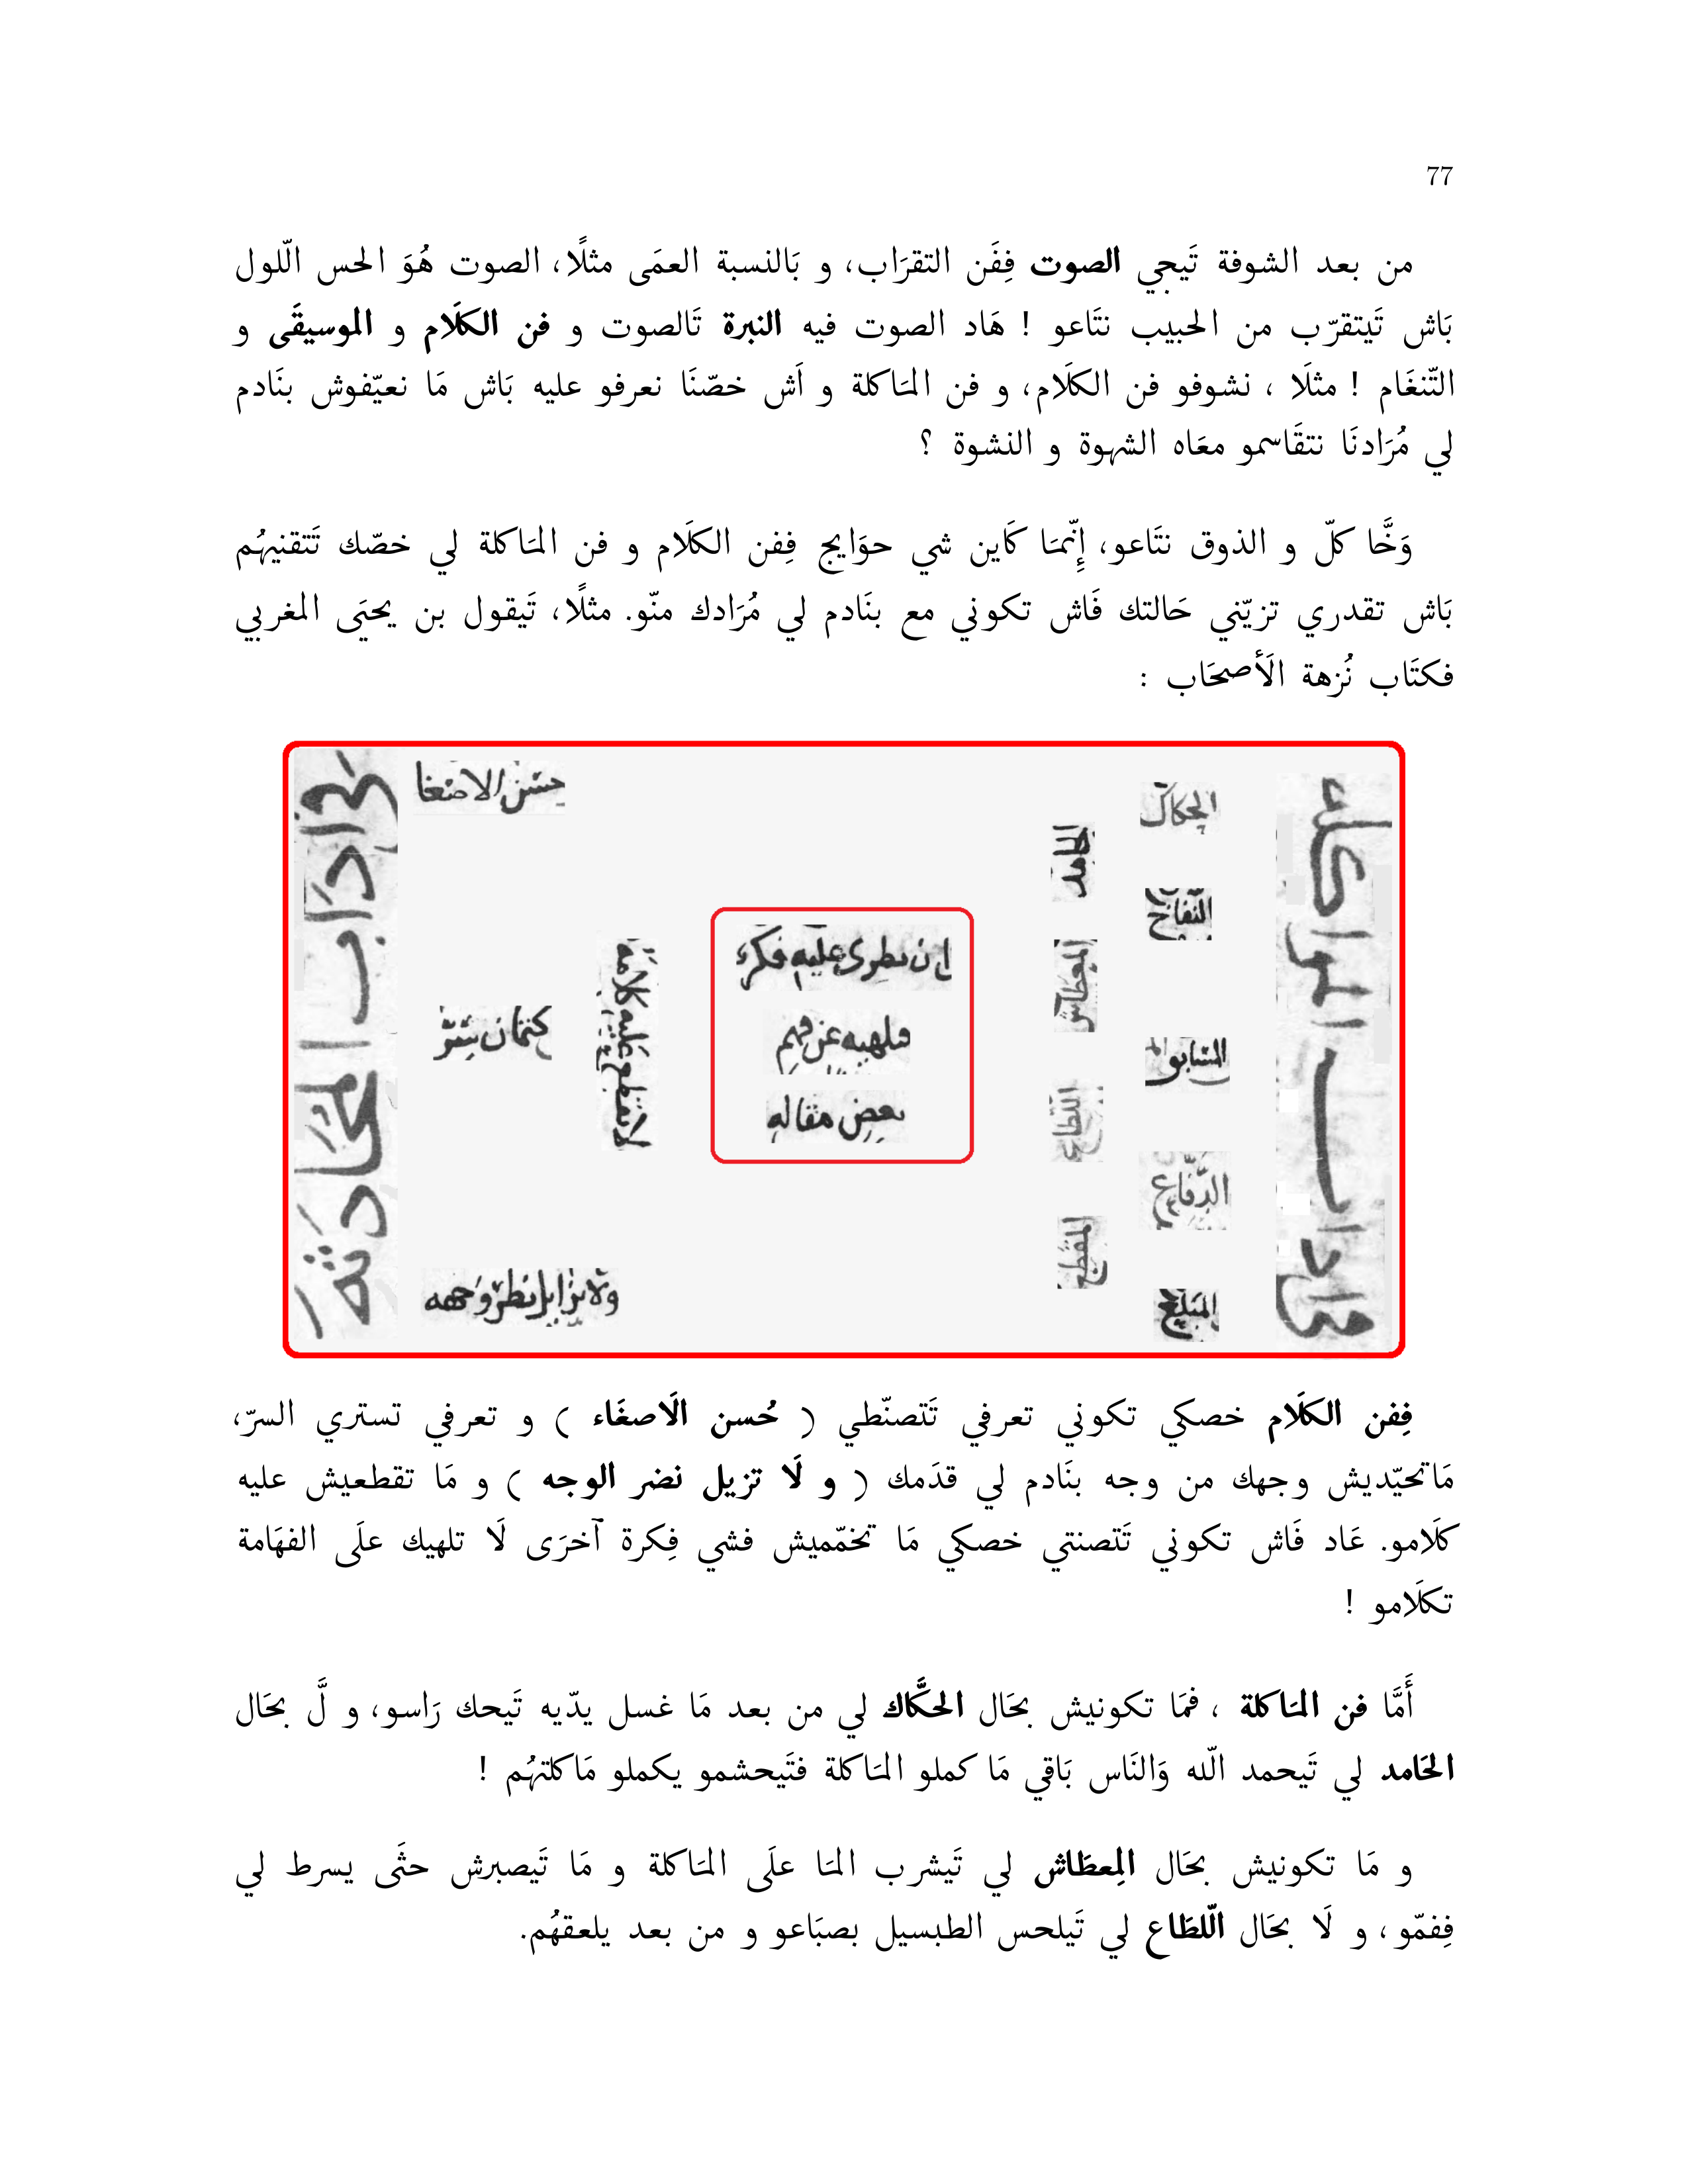 77
من بعد الشوفة تَيجي الصوت فِفَن التقرَاب، و بَالنسبة العمَى مثلًا، الصوت هُوَ الحس الّلول
بَاش تَيتقرّب من الحبيب نتَاعو ! هَاد الصوت فيه النبرة تَالصوت و فن الكلَام و الموسيقَى و
التّنغَام ! مثلَا ، نشوفو فن الكلَام، و فن المَاكلة و اَش خصّنَا نعرفو عليه بَاش مَا نعيّفوش بنَادم
لي مُرَادنَا نتقَاسمو معَاه الشهوة و النشوة ؟
وَخَّا كلّ و الذوق نتَاعو، إِنّمَا كَاين شي حوَايج فِفن الكلَام و فن المَاكلة لي خصّك تَتقنيهُم
بَاش تقدري تزيّني حَالتك فَاش تكوني مع بنَادم لي مُرَادك منّو. مثلًا، تَيقول بن يحيَى المغربي
فكتَاب نُزهة الَأصحَاب :
في اداب المواكله
الحكاك
النفاخ
الدّفاع
المبلع
الحامد
المعطاش
المقطع
ان يطرى عليه فكره
فيلهيه عن فهم
بعض مقاله
لا يقطع عليه كلامه
حسن الاصغا
كتمان سرّ
ولا يزايل نظر وجهه
في اداب المحادثة
فِفن الكلَام خصكي تكوني تعرفي تَتصنّطي ( حُسن الَاصغَاء ) و تعرفي تستري السرّ،
مَاتحيّديش وجهك من وجه بنَادم لي قدَمك ( و لَا تزيل نضر الوجه ) و مَا تقطعيش عليه
كلَامو. عَاد فَاش تكوني تَتصنتي خصكي مَا تخمّميش فشي فِكرة آخرَى لَا تلهيك علَى الفهَامة
تكلَامو !
أَمَّا فن المَاكلة ، فمَا تكونيش بحَال الحكَّاك لي من بعد مَا غسل يدّيه تَيحك رَاسو، و لَّ بحَال
الحَامد لي تَيحمد الّله وَالنَاس بَاقي مَا كملو المَاكلة فتَيحشمو يكملو مَاكلتهُم !
و مَا تكونيش بحَال المِعطَاش لي تَيشرب المَا علَى المَاكلة و مَا تَيصبرش حتَى يسرط لي
فِفمّو، و لَا بحَال الّلطَاع لي تَيلحس الطبسيل بصبَاعو و من بعد يلعقهُم.